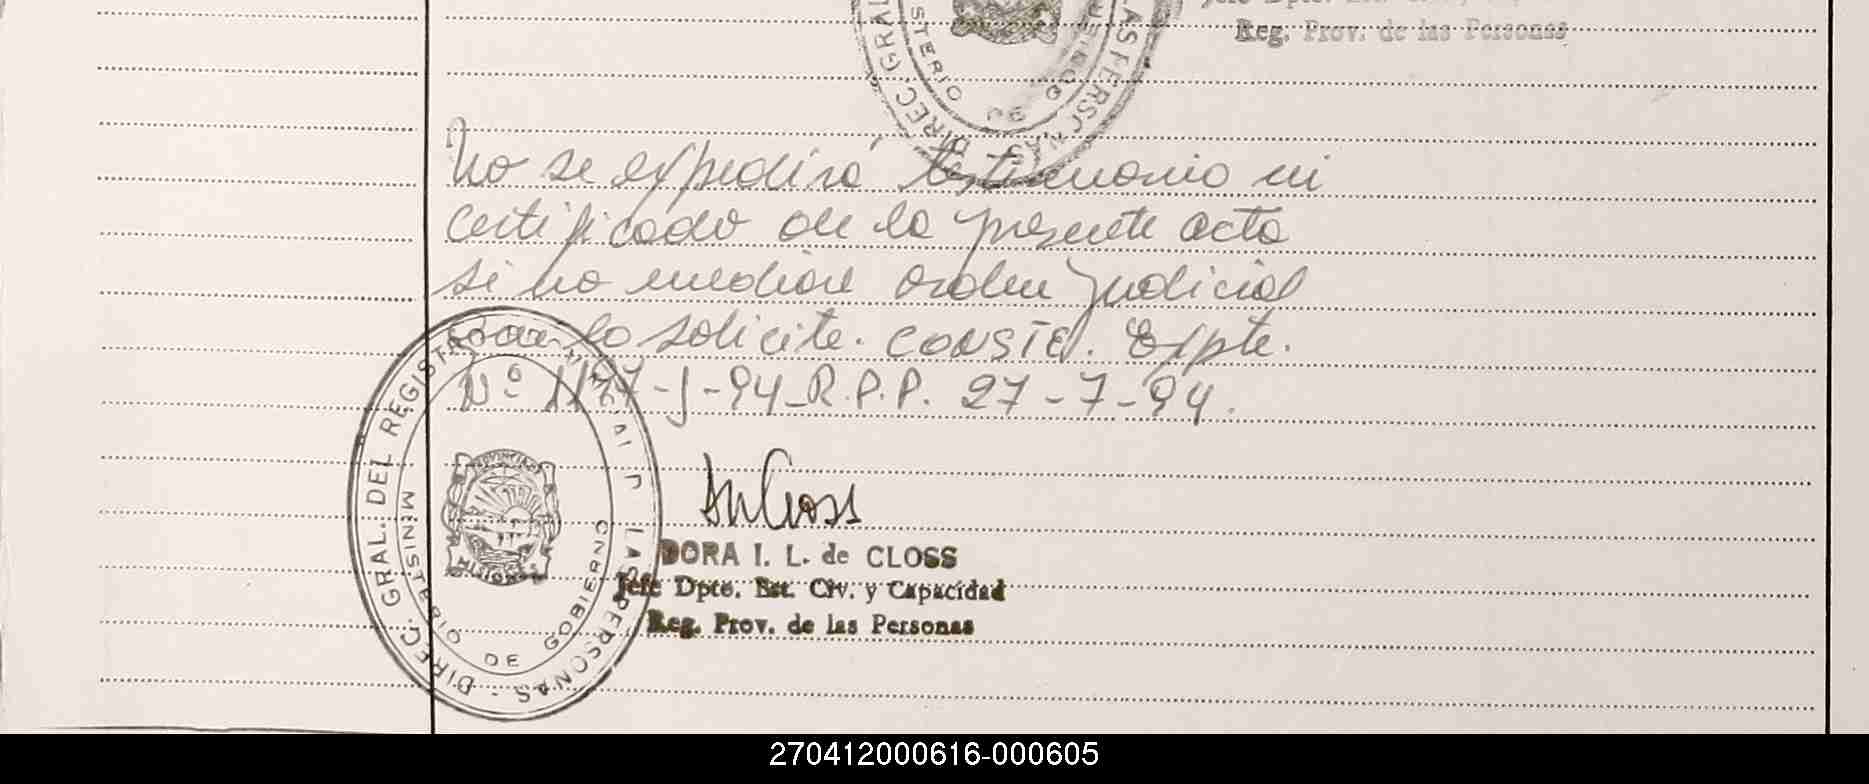 Reg. Prov. de las Personas
No se expedirá testimonio ni
certificado de la presente acta
si no mediare orden judicial
que lo solicite. CONSTE. Expte.
Nº 1177-J-94-R.P.P. 27-7-94.
DIREC. GRAL. DEL REGISTRO LAS PERSONAS
MINISTERIO DE GOBIERNO
PROVINCIA
MISIONES
DORA I. L. de CLOSS
Jefe Dpto. Est. Civ. y Capacidad
Reg. Prov. de las Personas
270412000616-000605